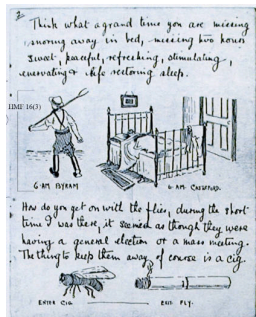 2
Think what a grand time you are missing
snoring away in bed, missing two hours
sweet, peaceful, refreshing, stimulating,
enervating & life restoring sleep.
HMF 16(3)
6 AM BYRAM
6 AM. CASTLEFORD.
How do you get on with the flies, during the short
time I was there, it seemed as though they were
having a general election or a mass meeting.
The thing to keep them away of course is a cig.
ENTER CIG
EXIT FLY.